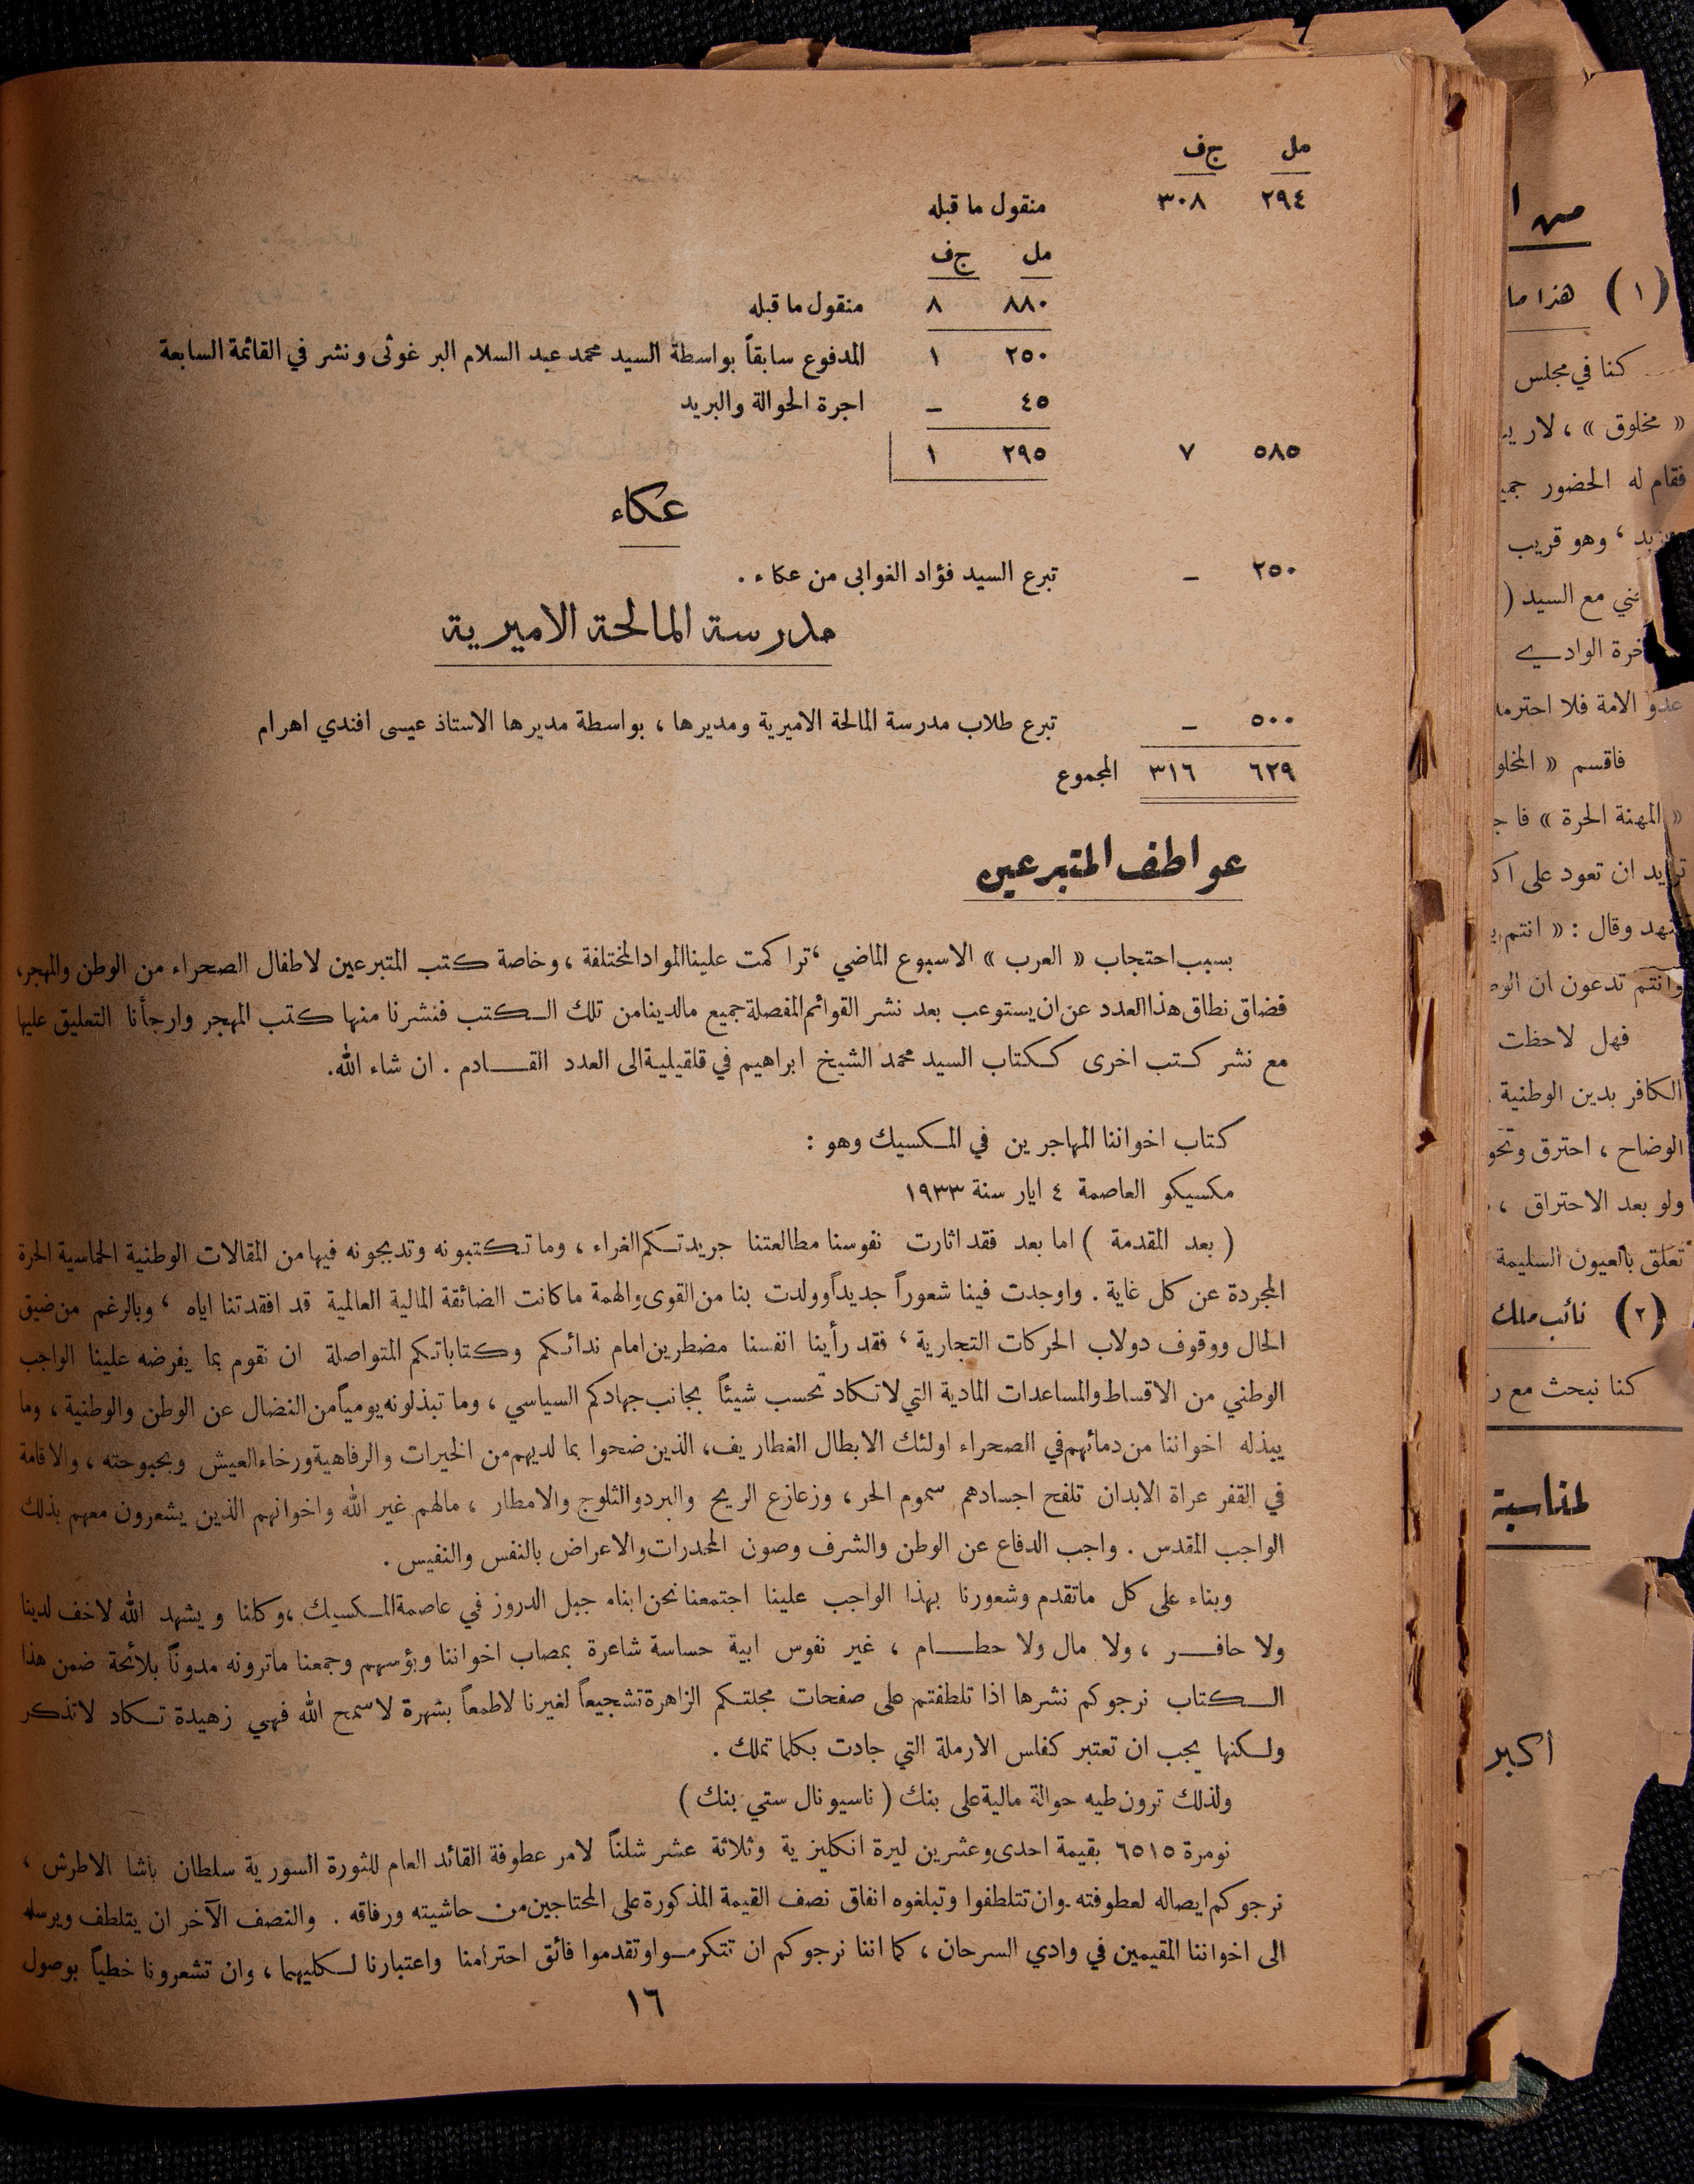 مل ج‌ف
٢٩٤ ٣٠٨ منقول ما قبله
مل ج‌ف
٨٨٠ ٨ منقول ما قبله
٢٥٠ ١ المدفوع سابقاً بواسطة السيد محمد عبد السلام البرغوثى ونشر في القائمة السابعة
٤٥ — اجرة الحوالة والبريد
٥٨٥ ٧ ٢٩٥ ١
عكاء
٢٥٠ — تبرع السيد فؤاد الغوابى من عكاء .
مدرسة المالحة الاميرية
٥٠٠ — تبرع طلاب مدرسة المالحة الاميرية ومديرها ، بواسطة مديرها الاستاذ عيسى افندي اهرام
٦٢٩ ٣١٦ المجموع
عواطف المتبرعين
بسبب احتجاب « العرب » الاسبوع الماضي ، تراكمت علينا المواد المختلفة ، وخاصة كتب المتبرعين لاطفال الصحراء من الوطن والمهجر،
فضاق نطاق هذا العدد عن ان يستوعب بعد نشر القوائم المفصلة جميع مالدينا من تلك الكتب فنشرنا منها كتب المهجر وارجأنا التعليق عليها
مع نشر كتب اخرى ككتاب السيد محمد الشيخ ابراهيم في قلقيلية الى العدد القادم . ان شاء الله.
كتاب اخواننا المهاجرين في المكسيك وهو :
مكسيكو العاصمة ٤ ايار سنة ١٩٣٣
( بعد المقدمة ) اما بعد فقد اثارت نفوسنا مطالعتنا جريدتكم الغراء ، وما تكتبونه وتدبجونه فيها من المقالات الوطنية الحماسية الحرة
المجردة عن كل غاية . واوجدت فينا شعوراً جديداً وولدت بنا من القوى والهمة ما كانت الضائقة المالية العالمية قد افقدتنا اياه ، وبالرغم من ضيق
الحال ووقوف دولاب الحركات التجارية ، فقد رأينا انفسنا مضطرين امام ندائكم وكتاباتكم المتواصلة ان نقوم بما يفرضه علينا الواجب
الوطني من الاقساط والمساعدات المادية التي لاتكاد تحسب شيئاً بجانب جهادكم السياسي ، وما تبذلونه يومياً من النضال عن الوطن والوطنية ، وما
يبذله اخواننا من دمائهم في الصحراء اولئك الابطال الغطاريف، الذين ضحوا بما لديهم من الخيرات والرفاهية ورخاء العيش وبحبوحته ، والاقامة
في القفر عراة الابدان تلفح اجسادهم سموم الحر ، وزعازع الريح والبرد والثلوج والامطار ، مالهم غير الله واخوانهم الذين يشعرون معهم بذلك
الواجب المقدس . واجب الدفاع عن الوطن والشرف وصون المخدرات والاعراض بالنفس والنفيس .
وبناء على كل ماتقدم وشعورنا بهذا الواجب علينا اجتمعنا نحن ابناء جبل الدروز في عاصمة المكسيك ، وكلنا ويشهد الله لاخف لدينا
ولا حافر ، ولا مال ولا حطام ، غير نفوس ابية حساسة شاعرة بمصاب اخواننا وبؤسهم وجمعنا ماترونه مدوناً بلائحة ضمن هذا
الكتاب نرجوكم نشرها اذا تلطفتم على صفحات مجلتكم الزاهرة تشجيعاً لغيرنا لاطمعاً بشهرة لاسمح الله فهي زهيدة تكاد لاتذكر
ولكنها يجب ان تعتبر كفلس الارملة التي جادت بكلما تملك .
ولذلك ترون طيه حوالة مالية على بنك ( ناسيونال ستي بنك )
نومرة ٦٥١٥ بقيمة احدى وعشرين ليرة انكليزية وثلاثة عشر شلناً لامر عطوفة القائد العام للثورة السورية سلطان باشا الاطرش ،
نرجوكم ايصاله لعطوفته . وان تتلطفوا وتبلغوه انفاق نصف القيمة المذكورة على المحتاجين من حاشيته ورفاقه . والنصف الآخر ان يتلطف ويرسله
الى اخواننا المقيمين في وادي السرحان ، كما اننا نرجوكم ان تتكرموا وتقدموا فائق احترامنا واعتبارنا لكليهما ، وان تشعرونا خطياً بوصول
١٦
من ا
(١) هذا ما
كنا في مجلس
« مخلوق » ، لار
فقام له الحضور
، وهو قريب
مع السيد (
الوادي
عدو الامة فلا
فاقسم «
« المهنة الحرة »
تريد ان تعود على
وقال : « انتم
وانتم تدعون ان
فهل لاحظت
الكافر بدين الوطنية
الوضاح ، احترق
ولو بعد الاحتراق ،
تعلق بالعيون السليمة
(٢) نائب ملك
كنا نبحث مع
لمناسبة
اكبر